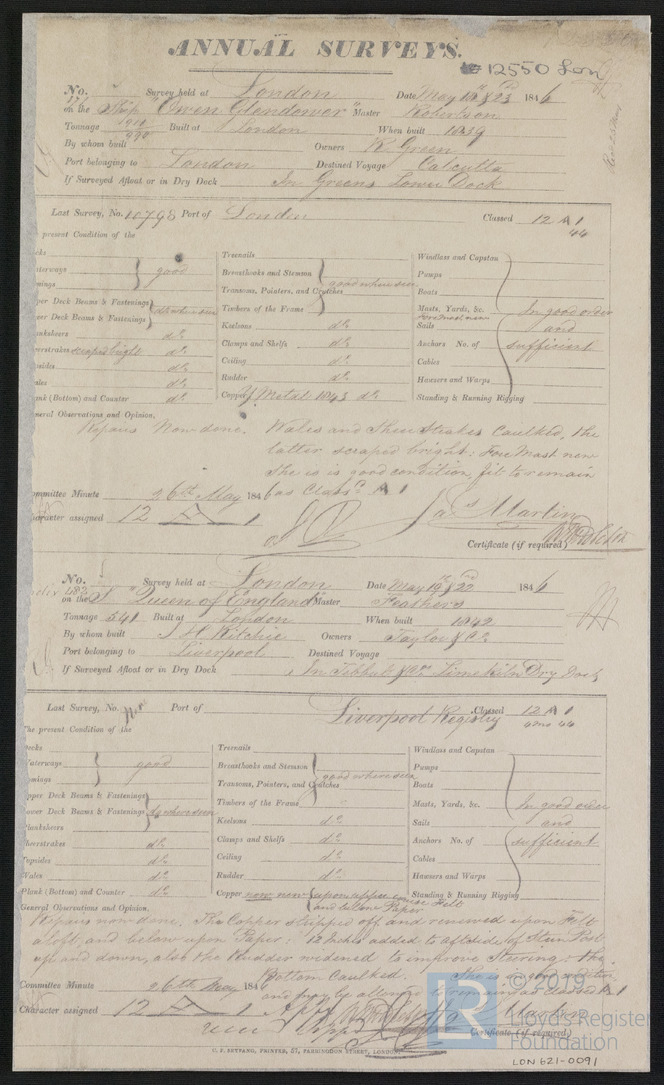 ANNUAL SURVEYS.
12550 Lon
No. Survey held at London Date May 1846
on the Ship "Owen Glendower" Master Robertson
Tonnage Built at London When built 1839
By whom built Owners R Green
Port belonging to London Destined Voyage Calcutta
If Surveyed Afloat or in Dry Dock In Greens Lower Dock
Last Survey, No. 10798 Port of London Classed 12 A 1
44
present Condition of the
Treenails
Windlass and Capstan
Breasthooks and Stemson
Pumps
good
good where seen
Transoms, Pointers, and Crutches
Boats
per Deck Beams & Fastenings
Timbers of the Frame
Masts, Yards, &c. In good order
Fore Mast new
wer Deck Beams & Fastenings
do where seen
Keelsons do
Sails and
anksheers do
Clamps and Shelfs do
Anchors No. of sufficient
erstrakes scraped bright do
Ceiling do
Cables
do
Rudder do
Hawsers and Warps
ank (Bottom) and Counter do
Copper Y Metal 1043 do
Standing & Running Rigging
neral Observations and Opinion,
Repairs Now done. Wales and Sheer Strakes Caulked, the
latter scraped bright: Fore Mast new
She is in good condition, fit to remain
as Classd A 1
ommittee Minute 26th May 1846
aracter assigned 12 A 1
Jas Martin
Certificate (if required)
No. Survey held at London Date May 1846
on the S "Queen of England" Master Feathers
Tonnage 541 Built at London When built 1842
By whom built J H Ritchie Owners Taylor & Co
Port belonging to Liverpool Destined Voyage
If Surveyed Afloat or in Dry Dock In Lime Kiln Dry Dock
Last Survey, No. New Port of Liverpool Registry Classed 12 A 1
44
The present Condition of the
Decks
Treenails
Windlass and Capstan
Waterways
Breasthooks and Stemson
Pumps
good
good where seen
Transoms, Pointers, and Crutches
Boats
Upper Deck Beams & Fastenings
Timbers of the Frame
Masts, Yards, &c. In good order
Lower Deck Beams & Fastenings
do where seen
Keelsons do
Sails and
Planksheers
Sheerstrakes do
Clamps and Shelfs do
Anchors No. of sufficient
Topsides do
Ceiling do
Cables
Wales do
Rudder do
Hawsers and Warps
Plank (Bottom) and Counter do
Copper now new upon Felt
and below Paper
Standing & Running Rigging
General Observations and Opinion,
Repairs now done. The Copper stripped off and renewed upon Felt
aloft, and below upon Paper: 12 Inches added to aftside of Stern Post
up and down, also the Rudder widened to improve Steering: the
Bottom Caulked. She is in good condition
Committee Minute 26th May 1846
Character assigned 12 A 1
Jas Martin
Certificate (if required)
C. F. SEYFANG, PRINTER, 57, FARRINGDON STREET, LONDON.
© 2019
Lloyd's Register
Foundation
LON 621-0091